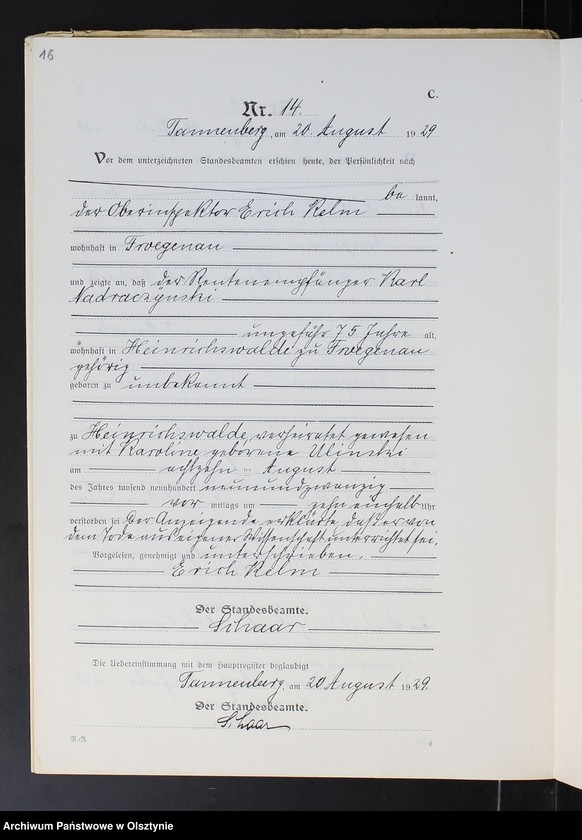 16
C.
Nr. 14.
Tannenberg, am 20. August 1929
Vor dem unterzeichneten Standesbeamten erschien heute, der Persönlichkeit nach
be kannt,
der Oberinspektor Erich Kelm
wohnhaft in Froegenau
und zeigte an, daß der Rentenempfänger Karl
Nadraczynski
ungefähr 75 Jahre alt,
wohnhaft in Heinrichswalde zu Froegenau
gehörig
geboren zu unbekannt
zu Heinrichswalde, verheiratet gewesen
mit Karoline geborene Ulinski
am achtzehn ten August
des Jahres tausend neunhundert neunundzwanzig
vor mittags um zehn einhalb Uhr
verstorben sei. Der Anzeigende erklärte, daß er von
dem Tode aus eigener Wissenschaft unterrichtet sei.
Vorgelesen, genehmigt und unterschrieben.
Erich Kelm
Der Standesbeamte.
Schaar
Die Uebereinstimmung mit dem Hauptregister beglaubigt
Tannenberg, am 20 August 1929.
Der Standesbeamte.
Schaar
Archiwum Państwowe w Olsztynie